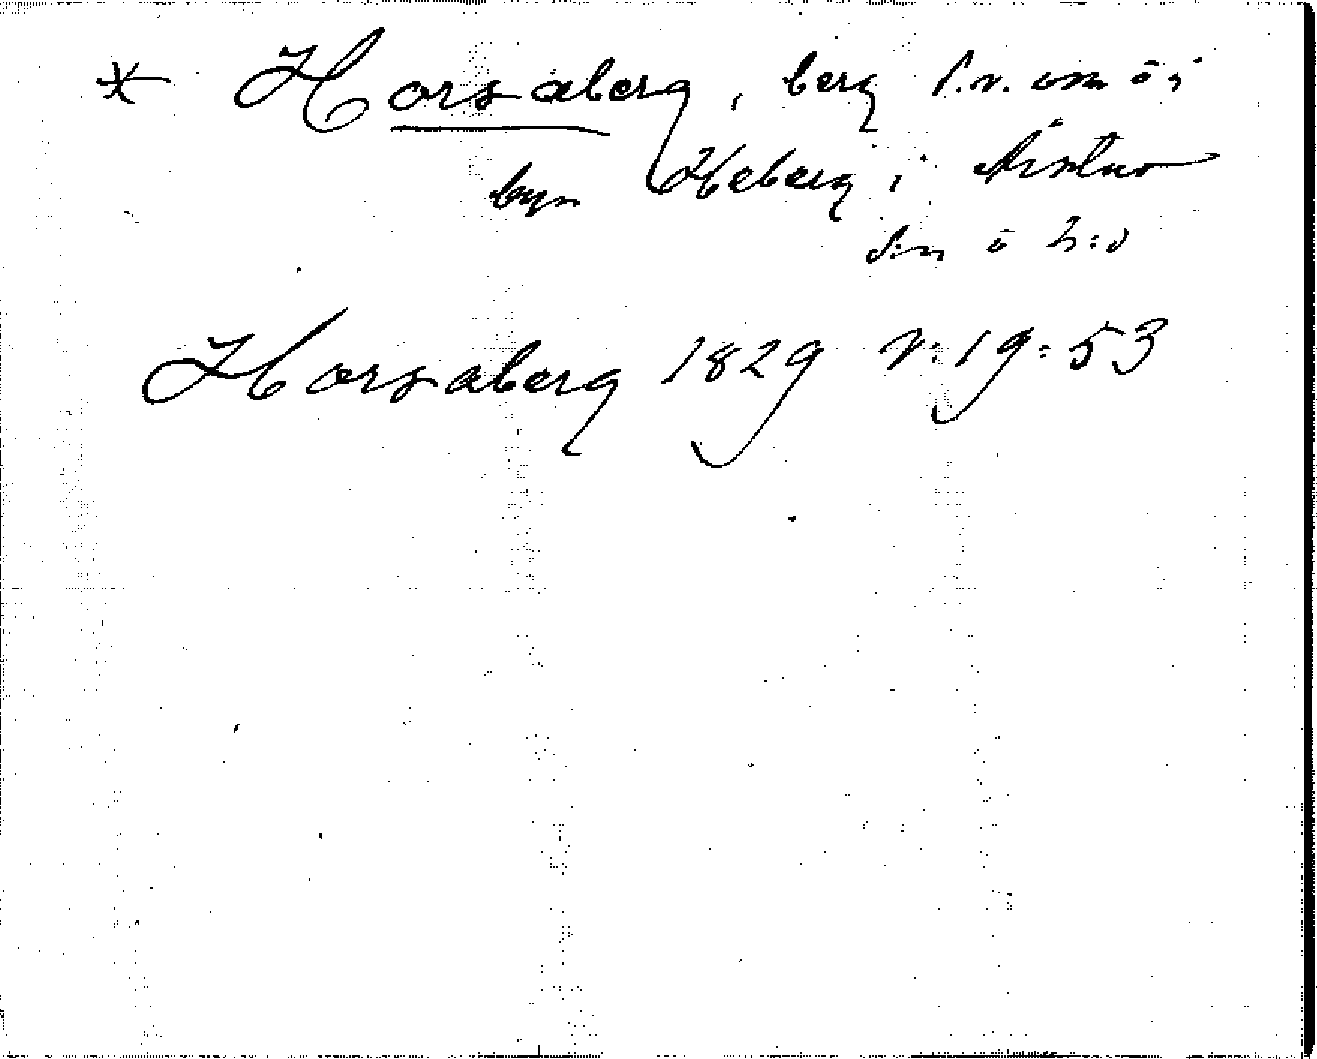 * Horsaberg, berg s.v. om ö i
byn Heberg i Årstad
sn o h:d
Horsaberg 1829 V:19:53